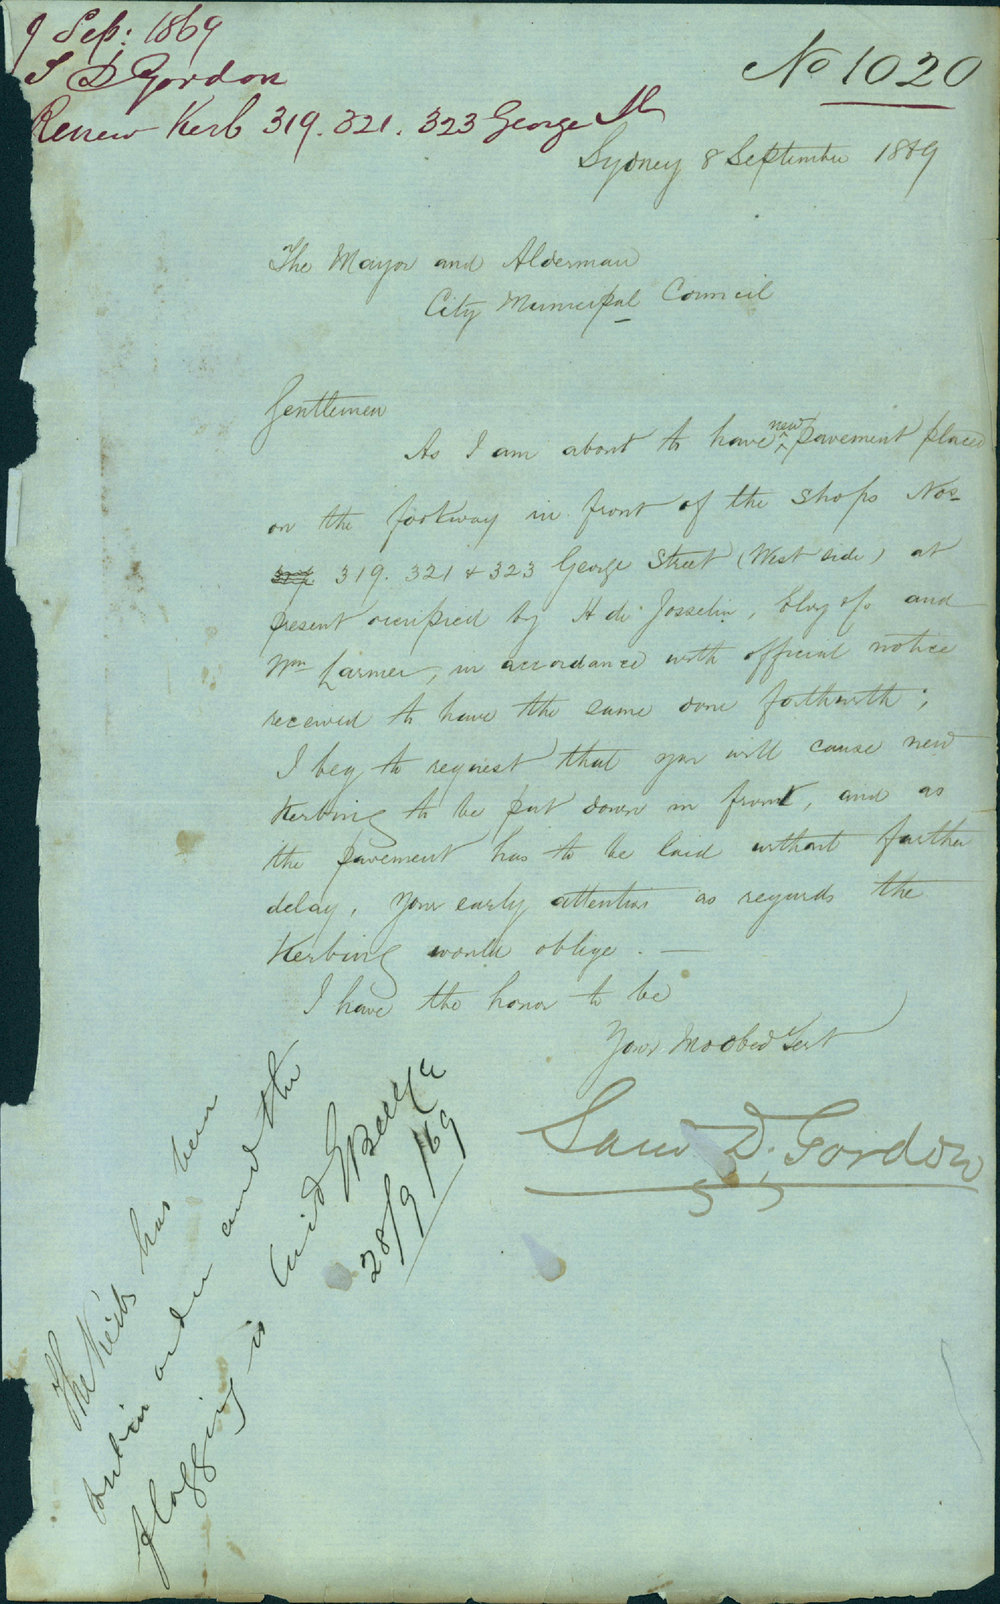 9 Sep: 1869
S D Gordon
Renew Kerb 319. 321. 323 George St
No 1020
Sydney 8 September 1869
The Mayor and Alderman
City Municipal Council
Gentlemen
As I am about to have new pavement placed
on the footway in front of the shops Nos
319. 321 & 323 George Street (West side) at
present occupied by H de Josselin, Clay & Co and
Wm Larmer, in accordance with official notice
received to have the same done forthwith;
I beg to request that you will cause new
Kerbing to be put down in front, and as
the pavement has to be laid without further
delay, your early attention as regards the
Kerbing would oblige. —
I have the honor to be
Your Mo Obed Sert
Saml D. Gordon
The Kerb has been
put in order and the
flagging is laid
28/9/69